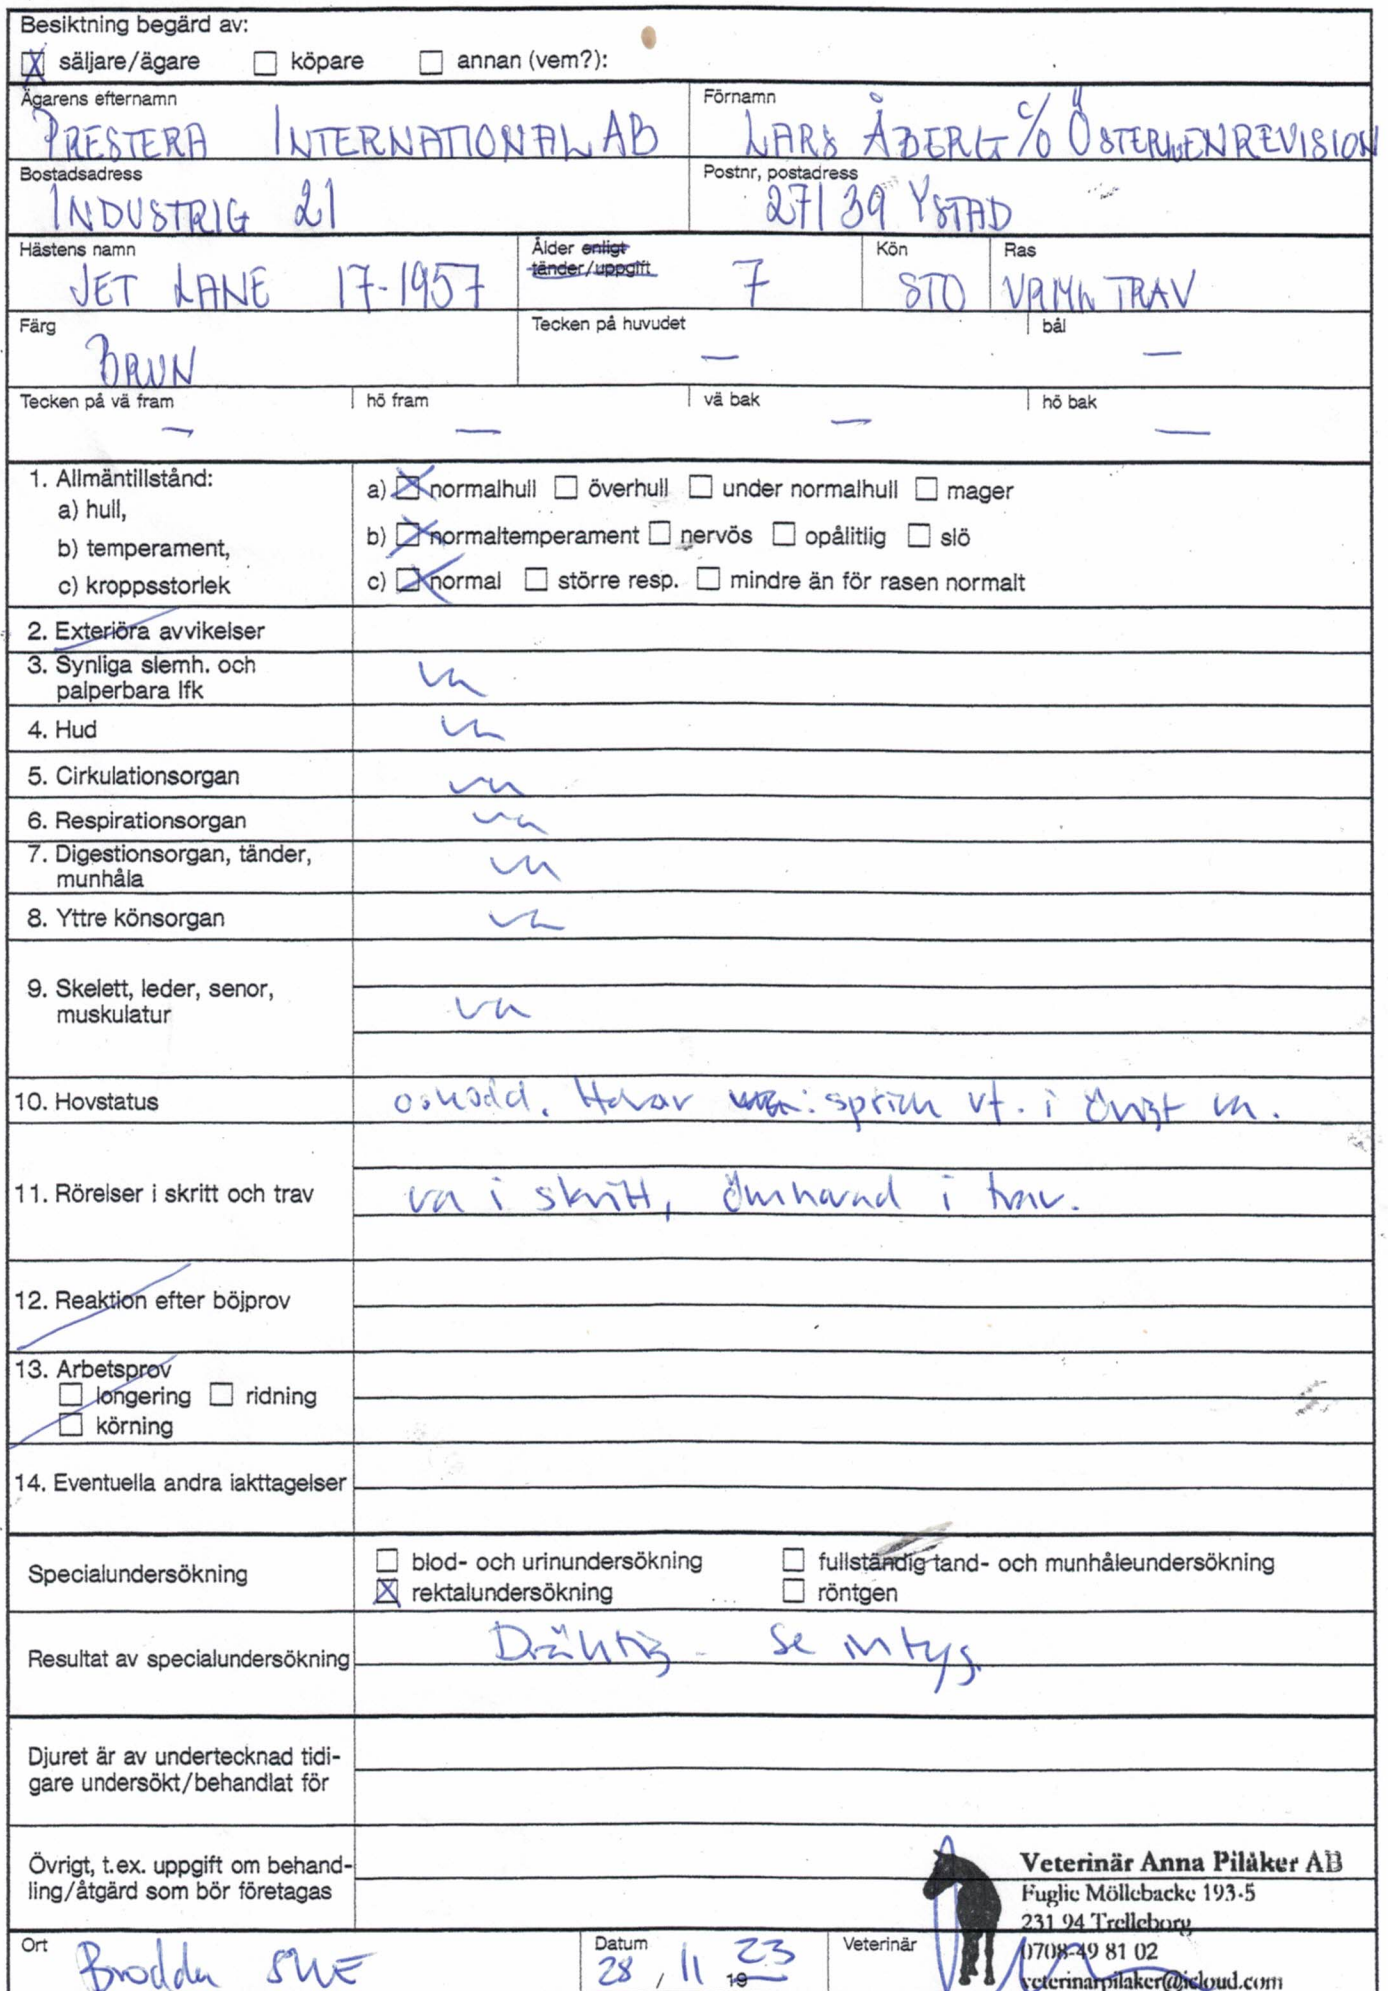 Besiktning begärd av:
säljare/ägare köpare annan (vem?):
Ägarens efternamn Förnamn
PRESTERA INTERNATIONAL AB LARS ÅBERG c/o ÖSTERLENREVISION
Bostadsadress Postnr, postadress
INDUSTRIG 21 27139 YSTAD
Hästens namn Ålder enligt tänder/uppgift Kön Ras
JET LANE 17-1957 7 STO VARMBL TRAV
Färg Tecken på huvudet bål
BRUN — —
Tecken på vä fram hö fram vä bak hö bak
— — — —
1. Allmäntillstånd:
a) hull,
b) temperament,
c) kroppsstorlek
a) normalhull överhull under normalhull mager
b) normaltemperament nervös opålitlig slö
c) normal större resp. mindre än för rasen normalt
2. Exteriöra avvikelser
3. Synliga slemh. och
palperbara lfk
ua
4. Hud ua
5. Cirkulationsorgan ua
6. Respirationsorgan ua
7. Digestionsorgan, tänder,
munhåla
ua
8. Yttre könsorgan ua
9. Skelett, leder, senor,
muskulatur
ua
10. Hovstatus oskodd. Hovar : sprick vf. i övrigt ua.
11. Rörelser i skritt och trav ua i skritt, ömhovad i trav.
12. Reaktion efter böjprov
13. Arbetsprov
longering ridning
körning
14. Eventuella andra iakttagelser
Specialundersökning
blod- och urinundersökning fullständig tand- och munhåleundersökning
rektalundersökning röntgen
Resultat av specialundersökning Dräktig - se intyg.
Djuret är av undertecknad tidi-
gare undersökt/behandlat för
Övrigt, t.ex. uppgift om behand-
ling/åtgärd som bör företagas
Veterinär Anna Pilåker AB
Fuglie Möllebacke 193-5
231 94 Trelleborg
0708-49 81 02
veterinarpilaker@icloud.com
Ort Datum Veterinär
Brodda SWE 28 / 11 19 23